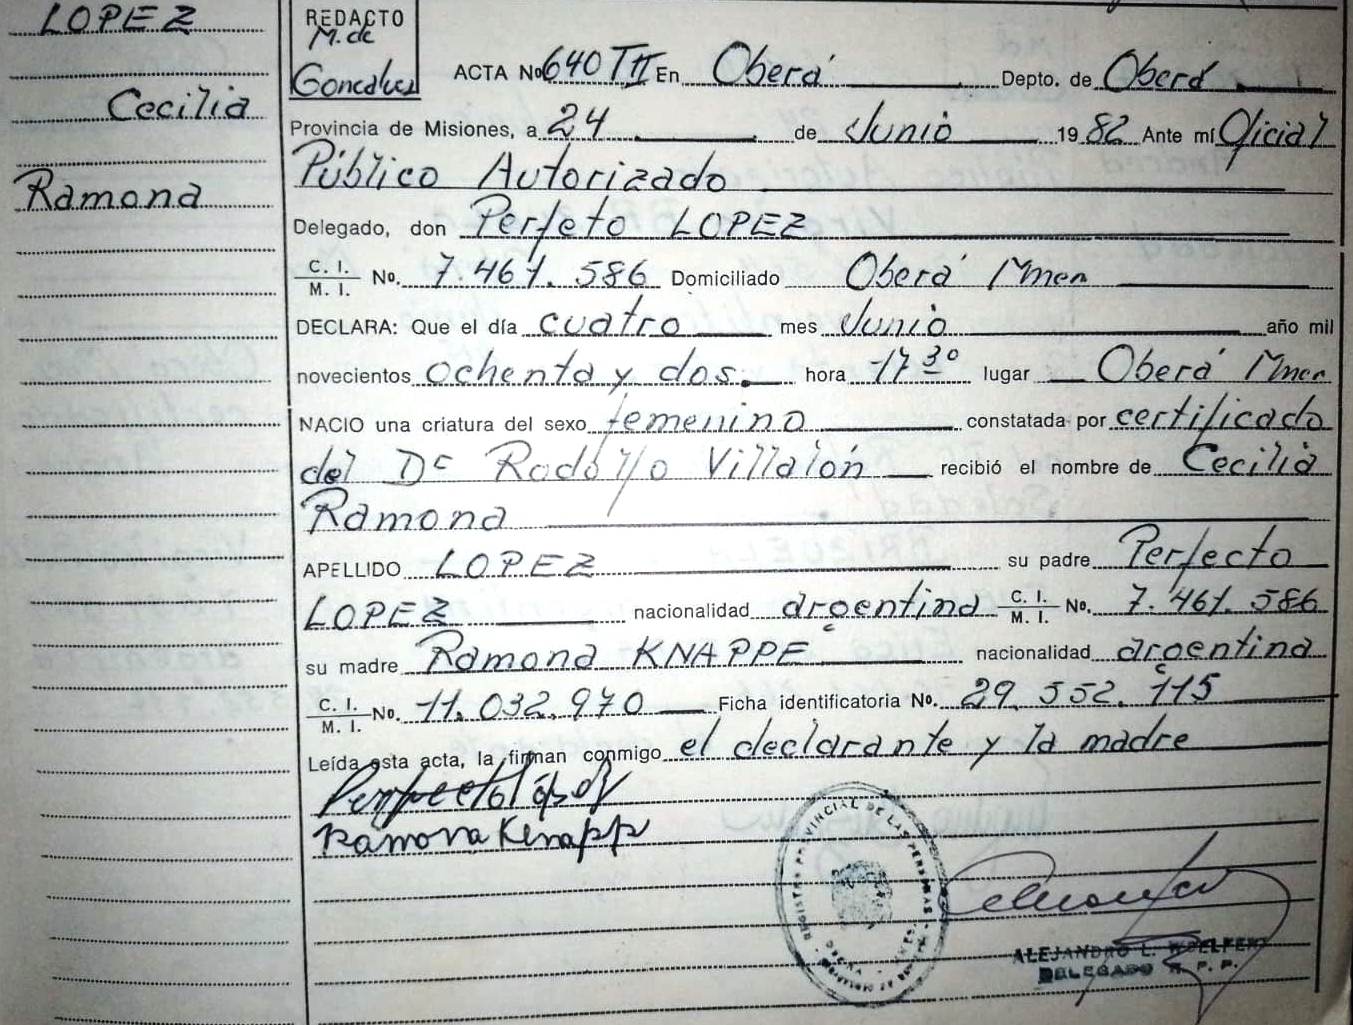 LOPEZ
Cecilia
Ramona
REDACTO
M. de
Goncalves
ACTA No 640 TII En Oberá Depto. de Oberá
Provincia de Misiones, a 24 de Junio 1982 Ante mí Oficial
Público Autorizado
Delegado, don Perfeto LOPEZ
C. I. M. I. No. 7.461.586 Domiciliado Oberá Mnes
DECLARA: Que el día cuatro mes Junio año mil
novecientos ochenta y dos. hora 17 30 lugar Oberá Mnes
NACIO una criatura del sexo femenino constatada por certificado
del Dr Rodolfo Villalón recibió el nombre de Cecilia
Ramona
APELLIDO LOPEZ su padre Perfecto
LOPEZ nacionalidad argentina C. I. M. I. No. 7.461.586
su madre Ramona KNAPPE nacionalidad argentina
C. I. M. I. No. 11.032.970 Ficha identificatoria No. 29.552.115
Leída esta acta, la firman conmigo el declarante y la madre
Perfecto López
Ramona Kenapp
REGISTRO PROVINCIAL DE LAS PERSONAS
ALEJANDRO L.
DELEGADO R. P. P.